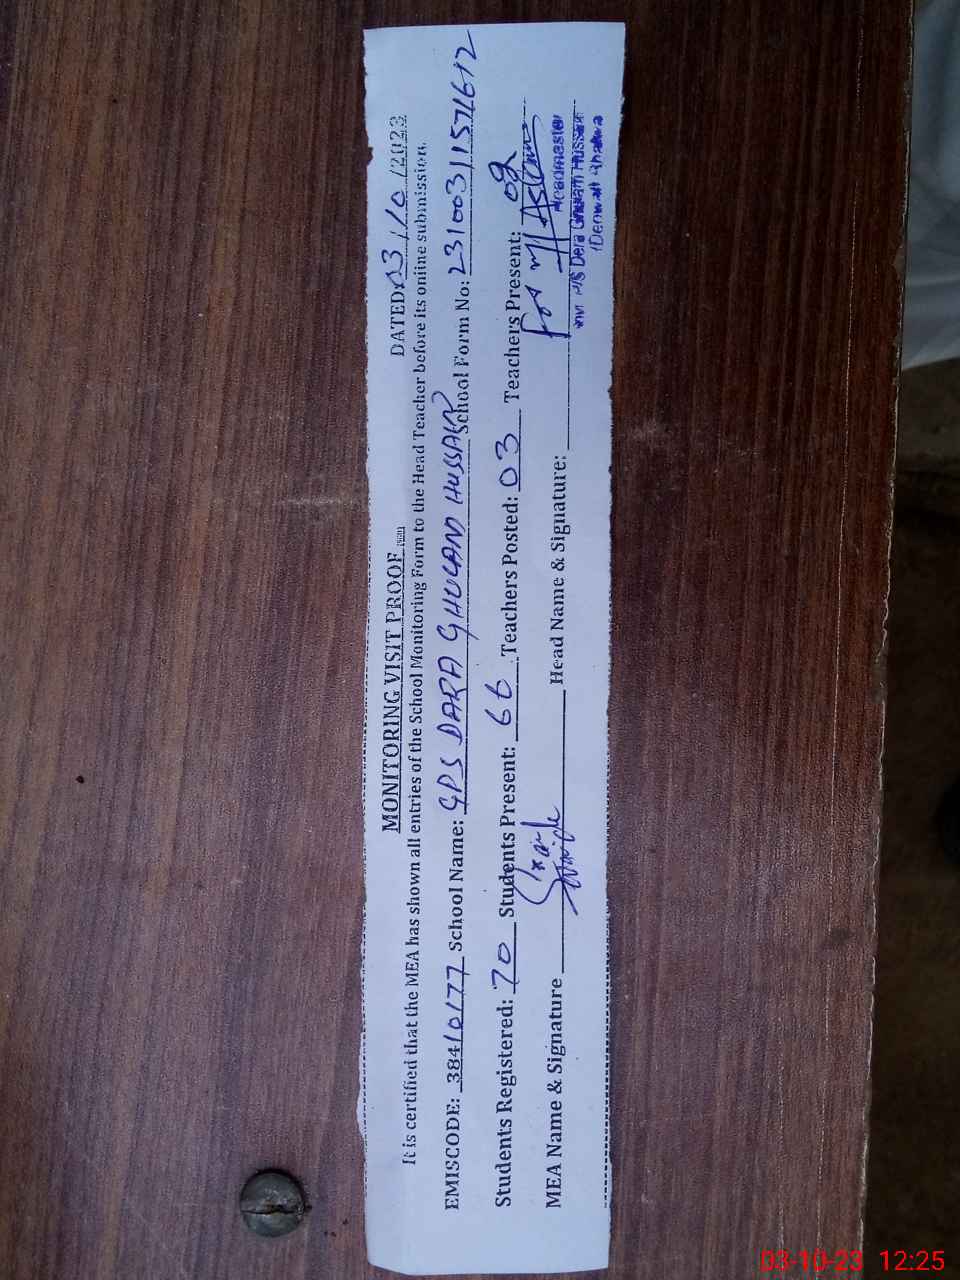 MONITORING VISIT PROOF
DATED 03/10/2023
It is certified that the MEA has shown all entries of the School Monitoring Form to the Head Teacher before its online submission.
EMISCODE: 38410177 School Name: GPS DARA GHULAM HUSSAIN School Form No: 23100311571612
Students Registered: 70 Students Present: 66 Teachers Posted: 03 Teachers Present: 02
MEA Name & Signature Head Name & Signature: For M Aslam
Headmaster
P/S Dera Ghulam Hussain
03-10-23 12:25